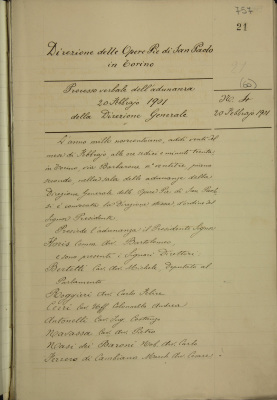 757
21
Direzione delle Opere Pie di San Paolo
in Torino
(60)
Processo verbale dell'adunanza
20 Febbrajo 1901
della Direzione Generale
N. 4
20 Febbrajo 1901
L'anno mille novecentouno, addì venti del
mese di Febbrajo alle ore sedici e minuti trenta,
in Torino, via Monte di Pietà
nella sala delle adunanze della
Direzione Generale delle Opere Pie di San Paolo
si è convocata la Direzione stessa d'ordine del
Signor Presidente
Presiede l'adunanza il Presidente Signor
Comm. Avv. Bartolomeo,
e sono presenti i Signori Direttori
Bertetti Cav. Avv. Michele, Deputato al
Parlamento
Ruggieri Avv. Carlo Felice
Ceresa Cav. Uff. Colonnello Andrea
Antonelli Cav. Ing. Costanzo
Ravassa Cav. Avv. Pietro
Nasi dei Baroni Nob. Avv. Carlo
Ferrero di Cambiano March. Avv. Cesare